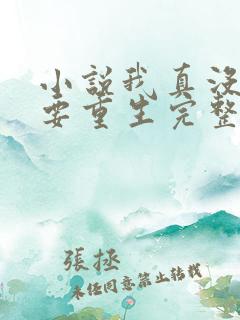 小说我真没
要重生完整
張拯
未經同意禁止轉載